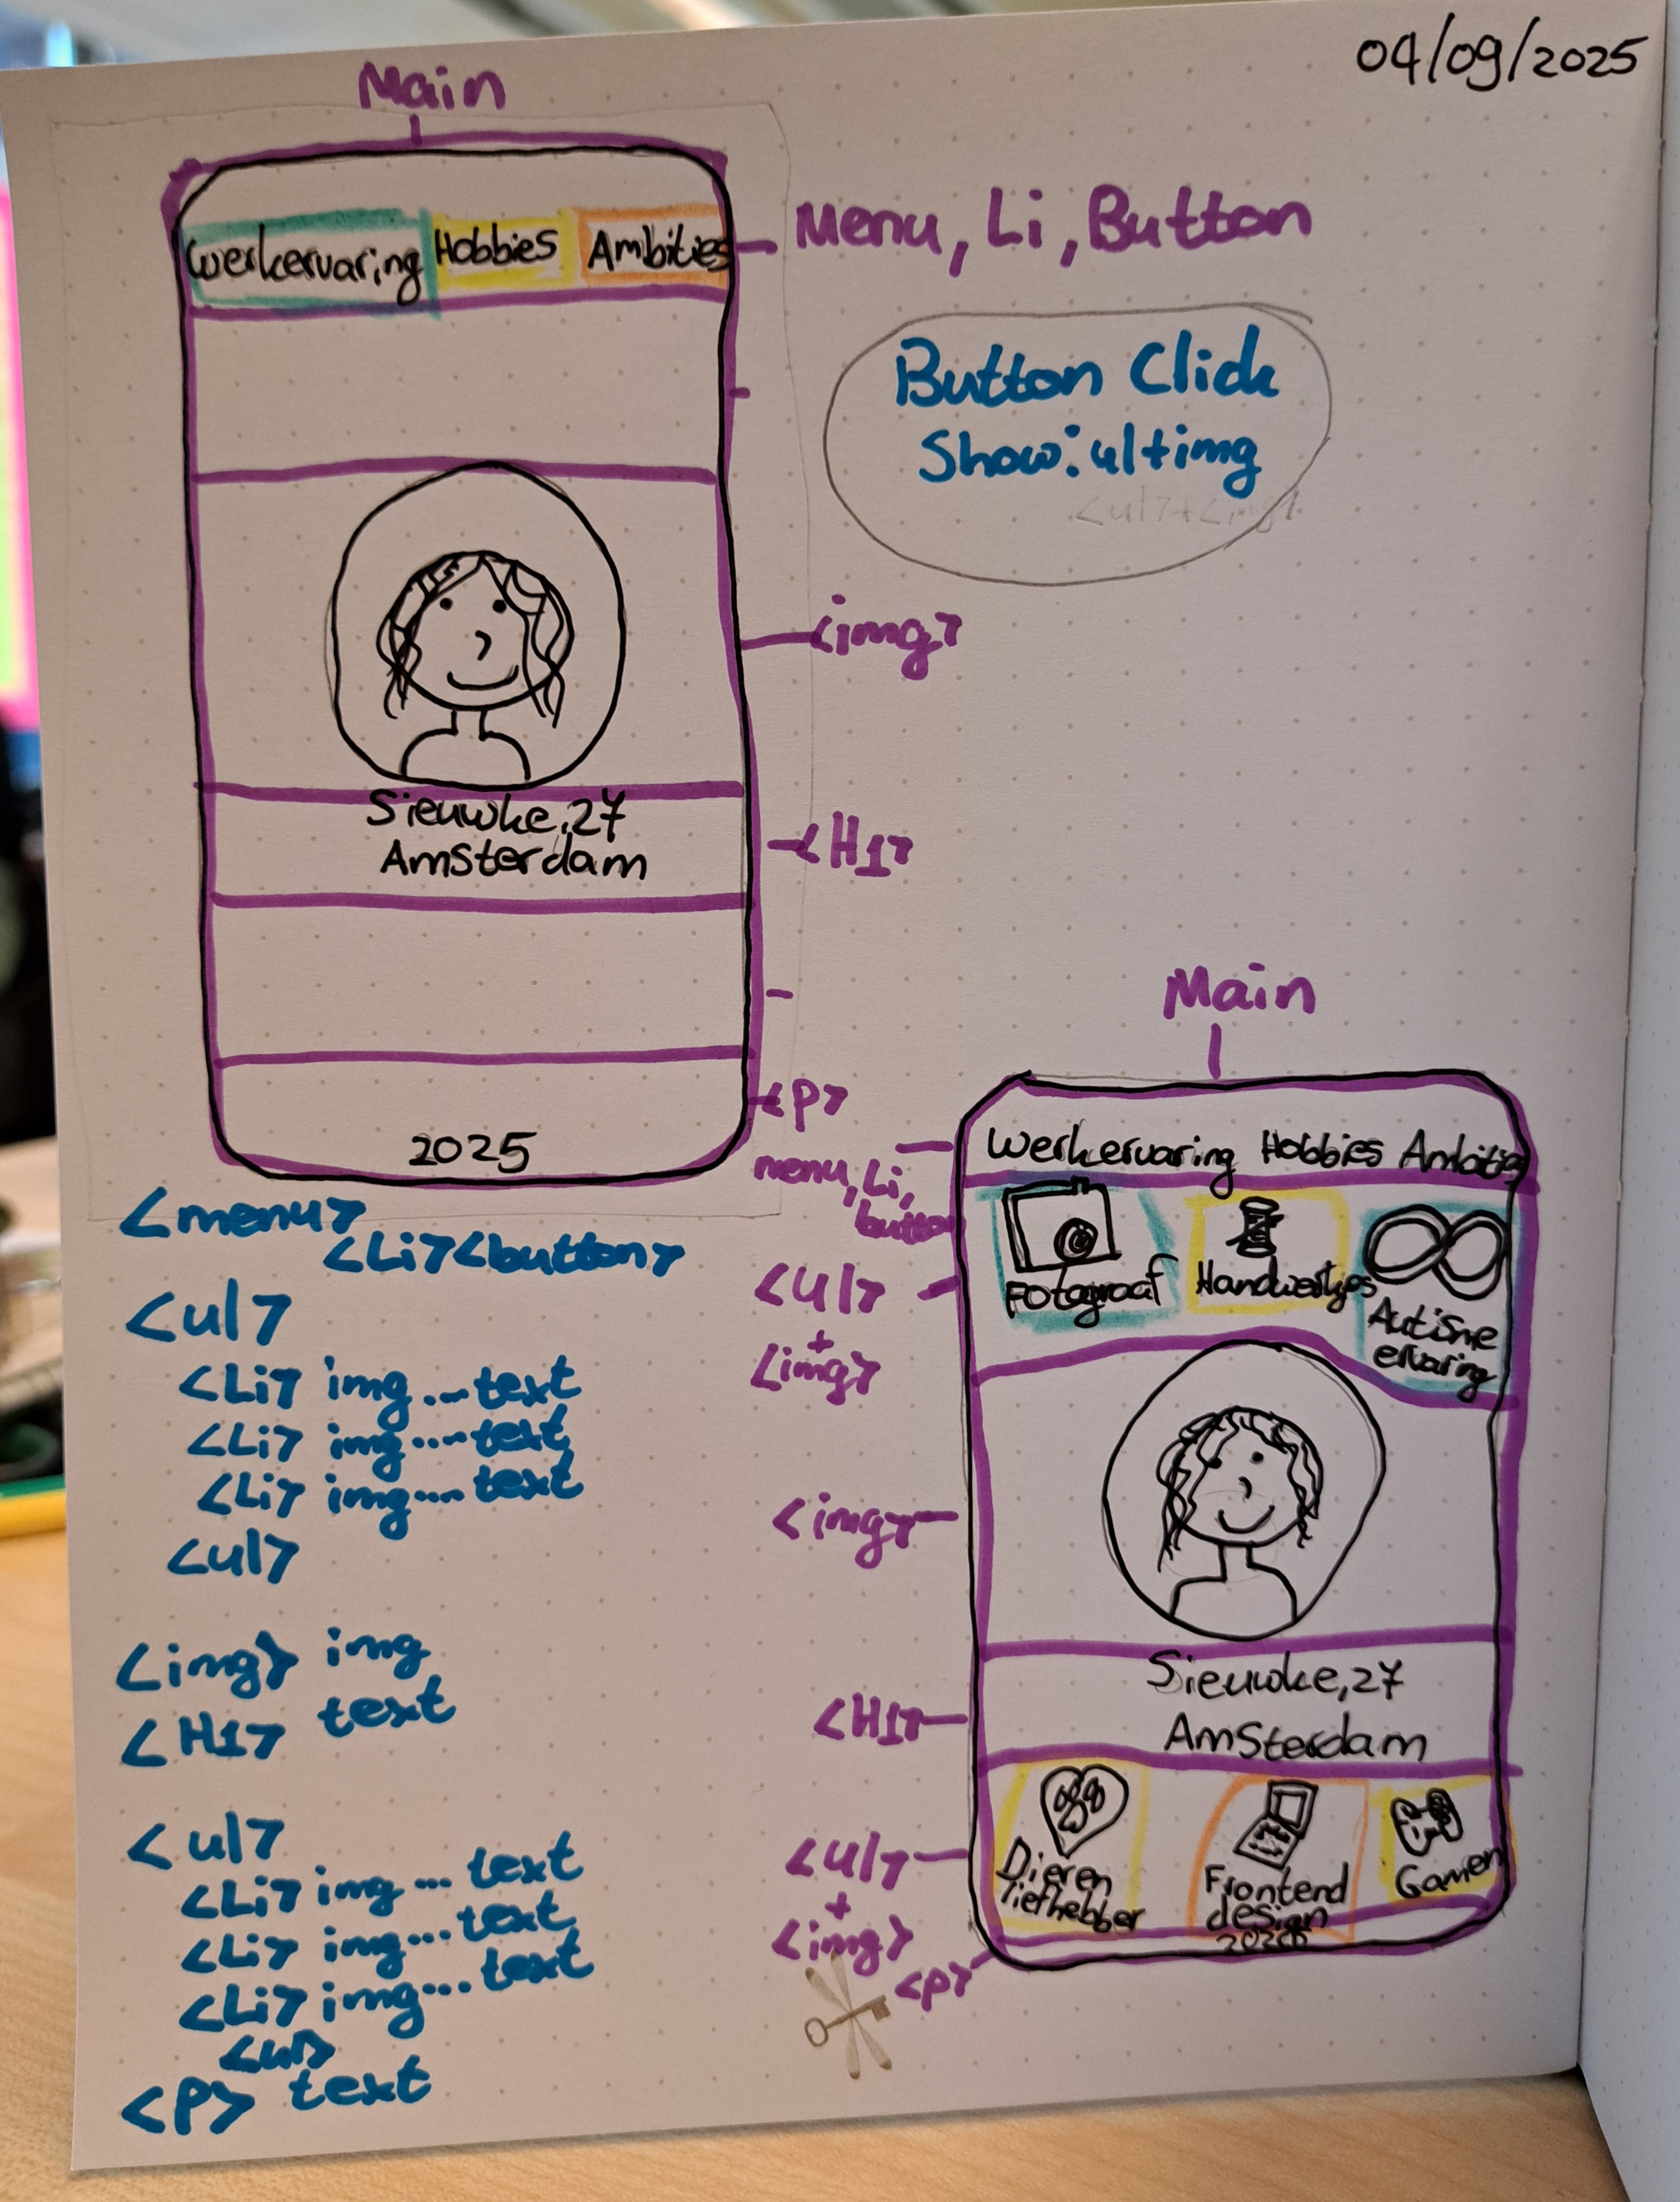 04/09/2025
Main
Werkervaring Hobbies Ambities
Menu, Li, Button
Button Click
Show: ul+img
<ul>+<img>
<img>
Sieuwke, 27
Amsterdam
<H1>
<P>
2025
<menu>
<Li><button>
<ul>
<Li> img...text
<Li> img...text
<Li> img...text
<ul>
<img> img
<H1> text
<ul>
<Li> img...text
<Li> img...text
<Li> img...text
<ul>
<P> text
Main
menu, Li,
button
Werkervaring Hobbies Ambities
<ul>
+
<img>
Fotograaf
Handwerkjes
Autisme
ervaring
<img>
<H1>
Sieuwke, 27
Amsterdam
<ul>
+
<img>
Dieren
liefhebber
Frontend
design
Gamen
<p>